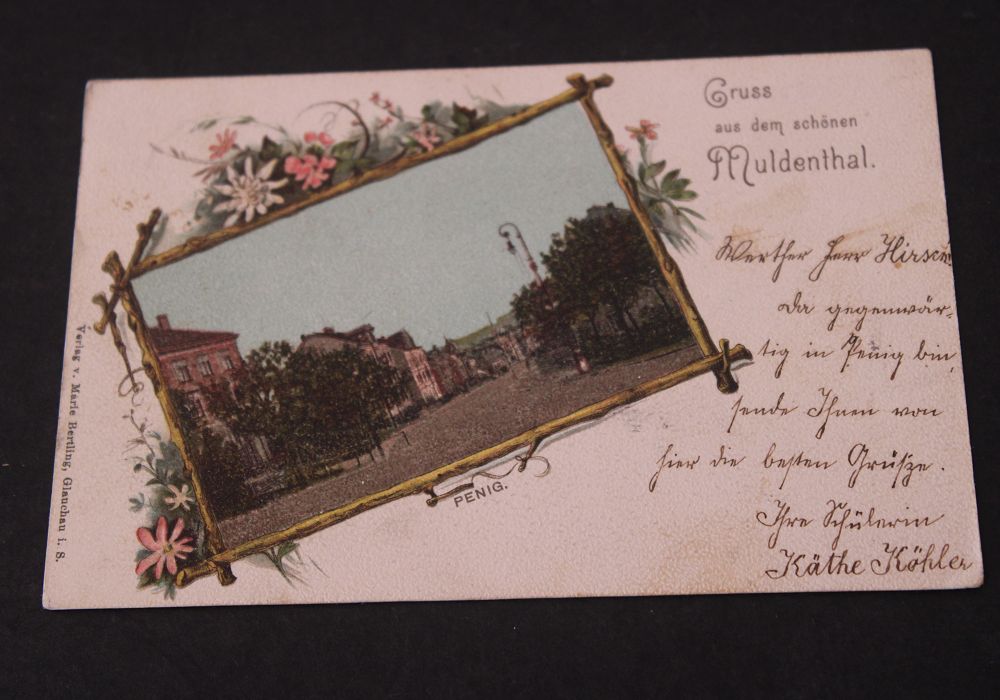 Gruss
aus dem schönen
Muldenthal.
Werther Herr Hirsch
da gegenwär-
tig in Penig bin,
sende Ihnen von
hier die besten Grüsze.
Ihre Schülerin
Käthe Köhler
PENIG.
Verlag v. Marie Bertling, Glauchau i. S.